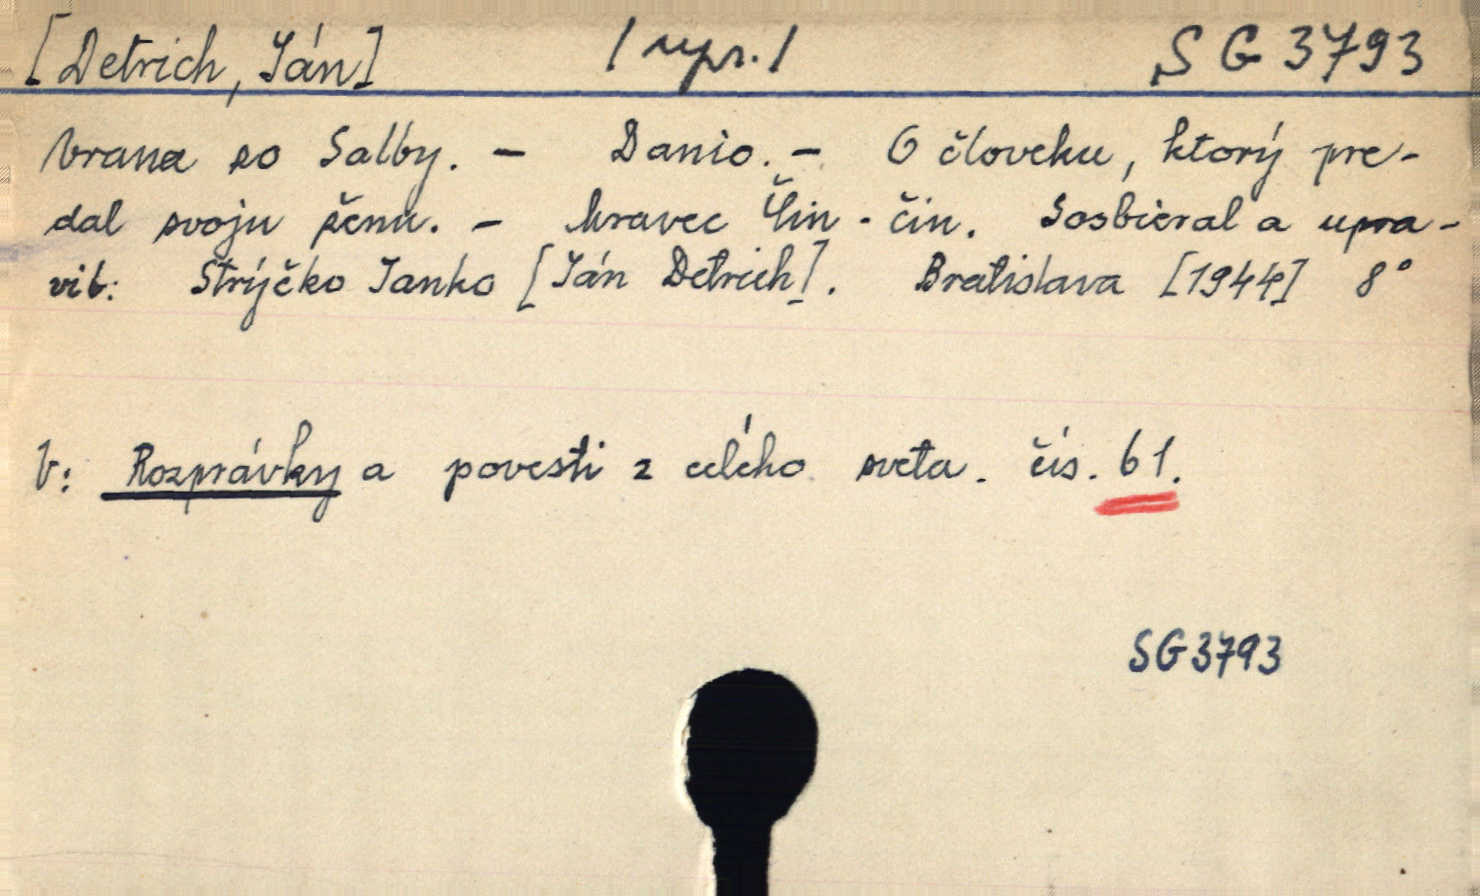 [Detrich, Ján] /upr./ SG 3793
Vrana so Salby. - Danio. - O človeku, ktorý pre-
dal svoju ženu. - Mravec Čin-čin. Sosbieral a upra-
vil: Strýčko Janko [Ján Detrich]. Bratislava [1944] 8°
V: Rozprávky a povesti z celého sveta. čís. 61.
SG 3793